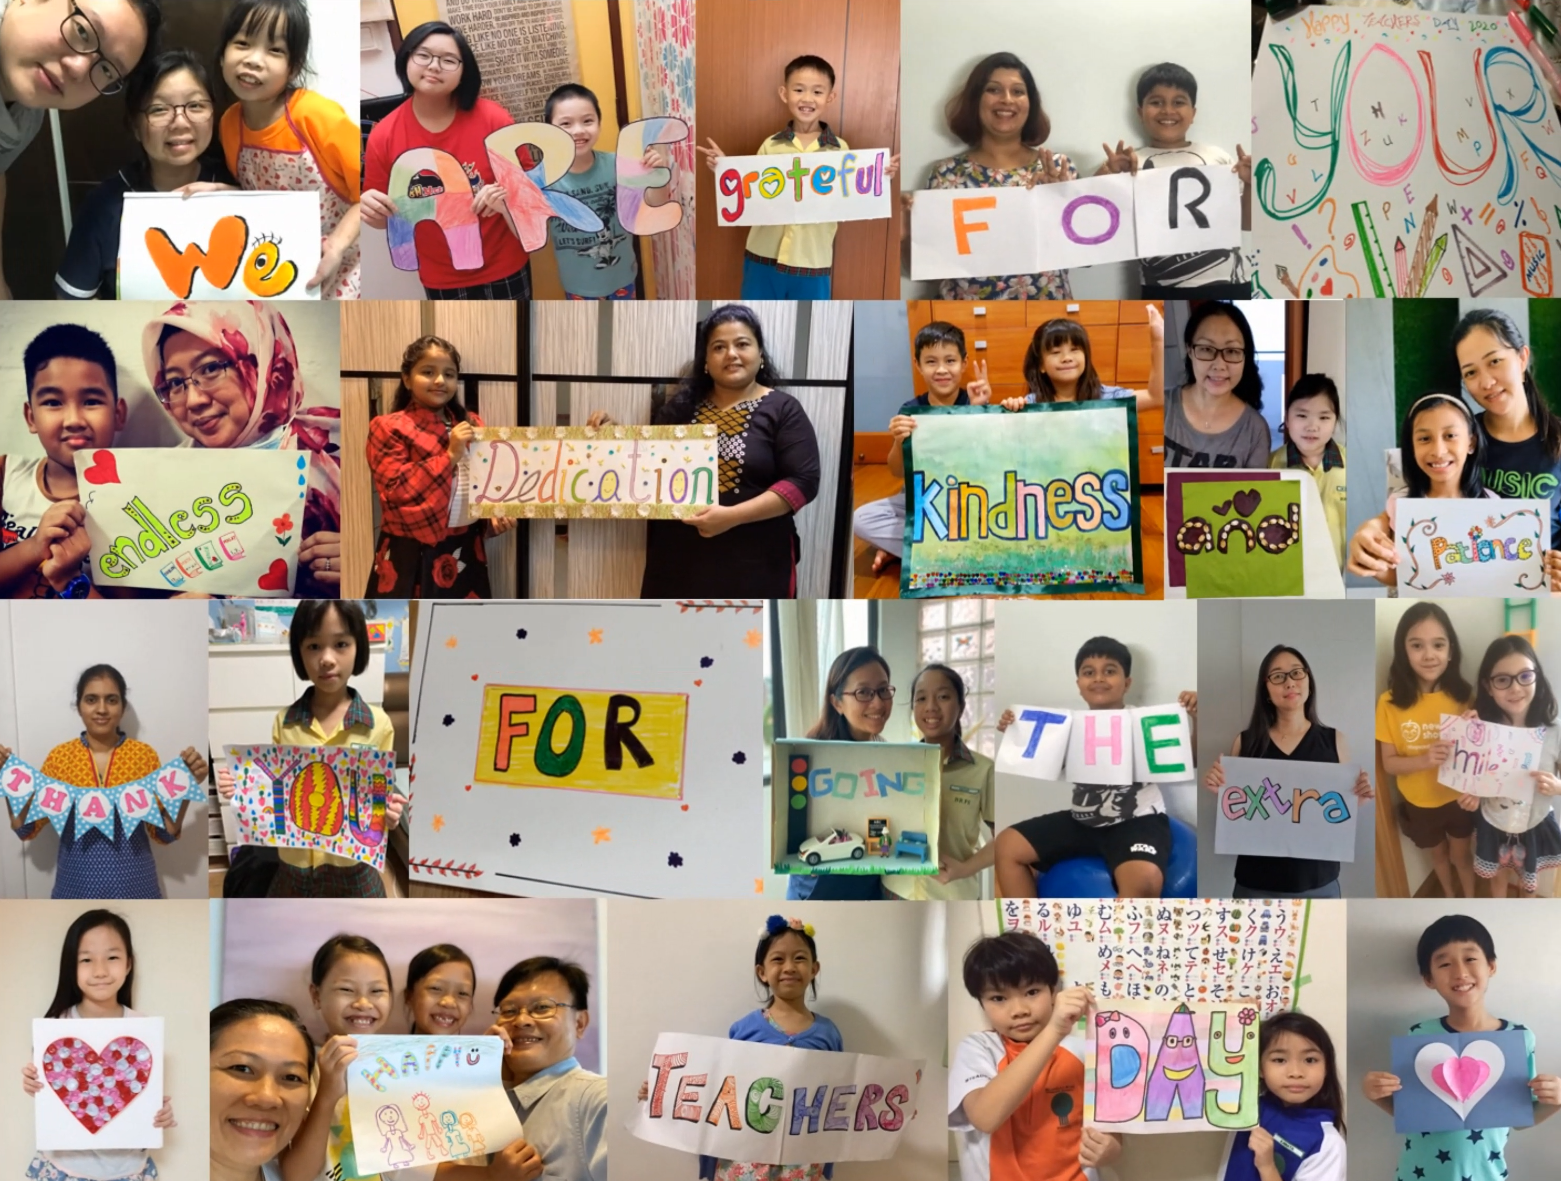 We
WORK HARD.
ARE
grateful
FOR
Happy TEACHERS' DAY 2020
YOUR
MUSIC
endless
Dedication
kindness
and
Patience
MUSIC
THANK
YOU
FOR
GOING
THE
extra
mile
HAPPY
TEACHERS'
DAY